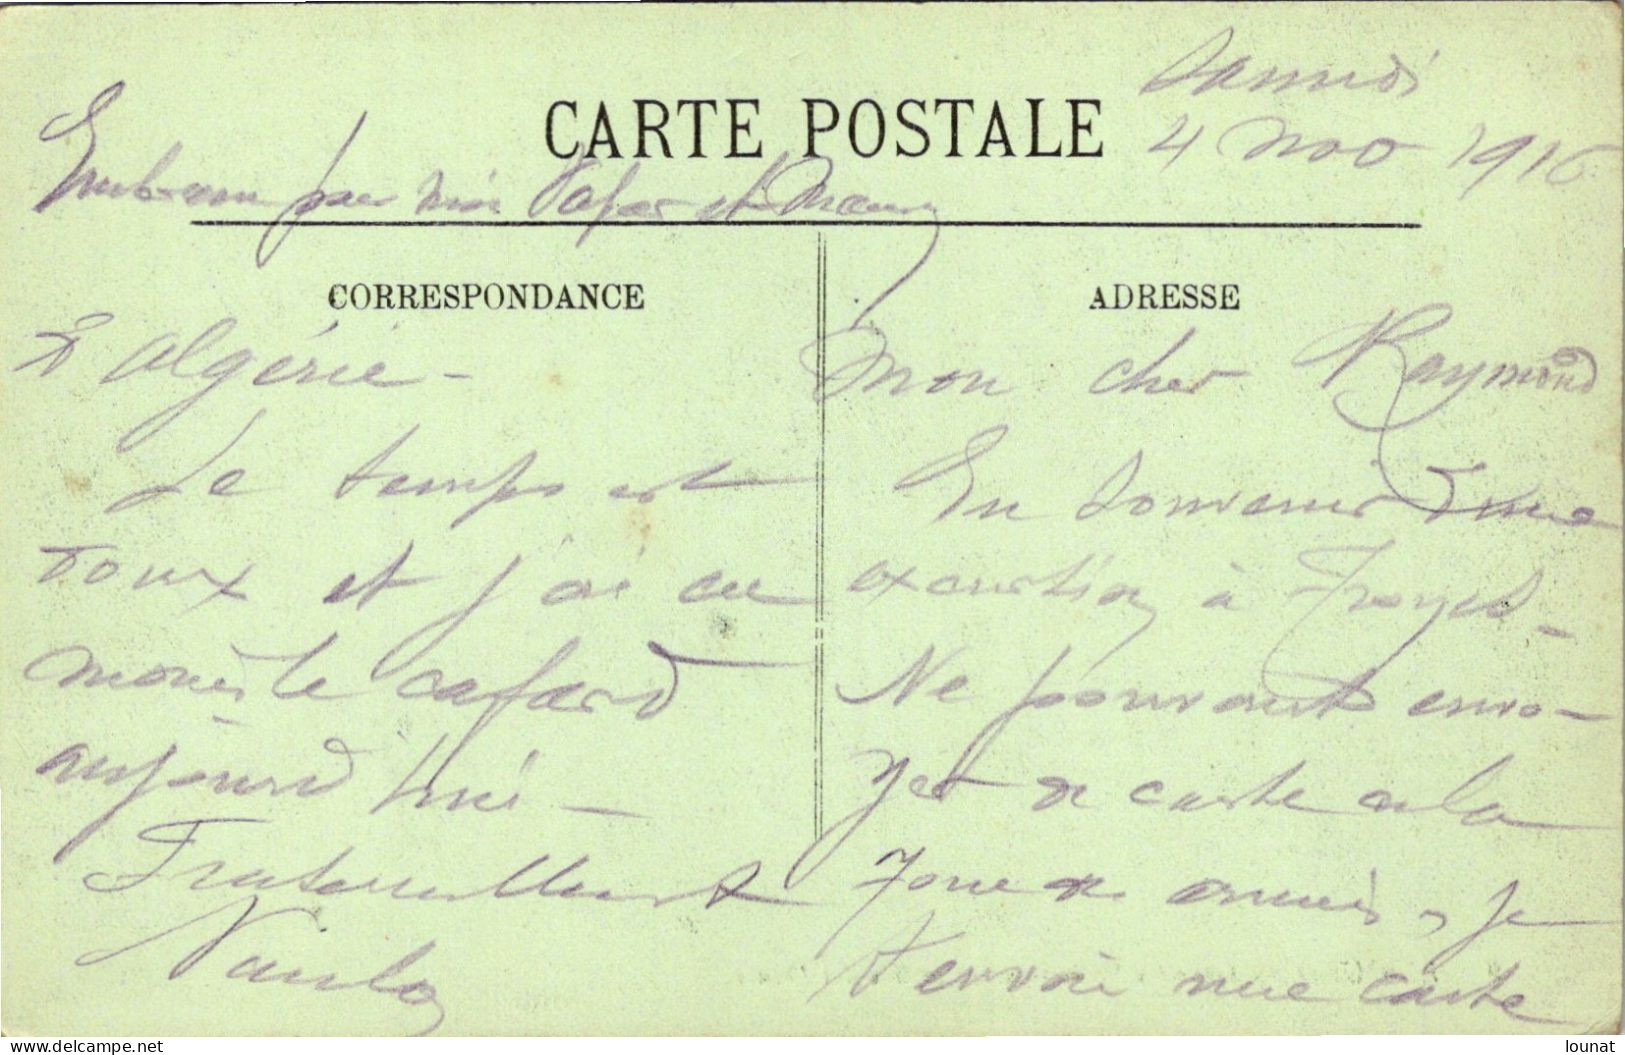 Samedi
CARTE POSTALE
4 Nov 1916
Embrasse pour moi Papa et Maman
CORRESPONDANCE
ADRESSE
Mon cher Raymond
En souvenir d'une
excursion à Troyes -
Ne pouvant envo-
yer de carte de la
zone de armées, je
t'envoie une carte
d'Algérie -
Le temps est
doux et j'ai eu
moins le cafard
aujourd'hui -
Fraternellement
delcampe.net
lounat